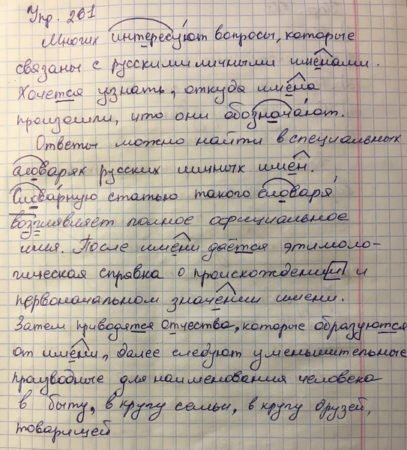 Упр. 261
Многих интересуют вопросы, которые
связаны с русскими личными именами.
Хочется узнать, откуда имена
произошли, что они обозначают.
Ответы можно найти в специальных
словарях русских личных имён.
Словарную статью такого словаря
возглавляет полное официальное
имя. После имени даётся этимоло-
гическая справка о происхождении и
первоначальном значении имени.
Затем приводятся отчества, которые образуются
от имени, далее следуют уменьшительные
производные для наименования человека
в быту, в кругу семьи, в кругу друзей,
товарищей